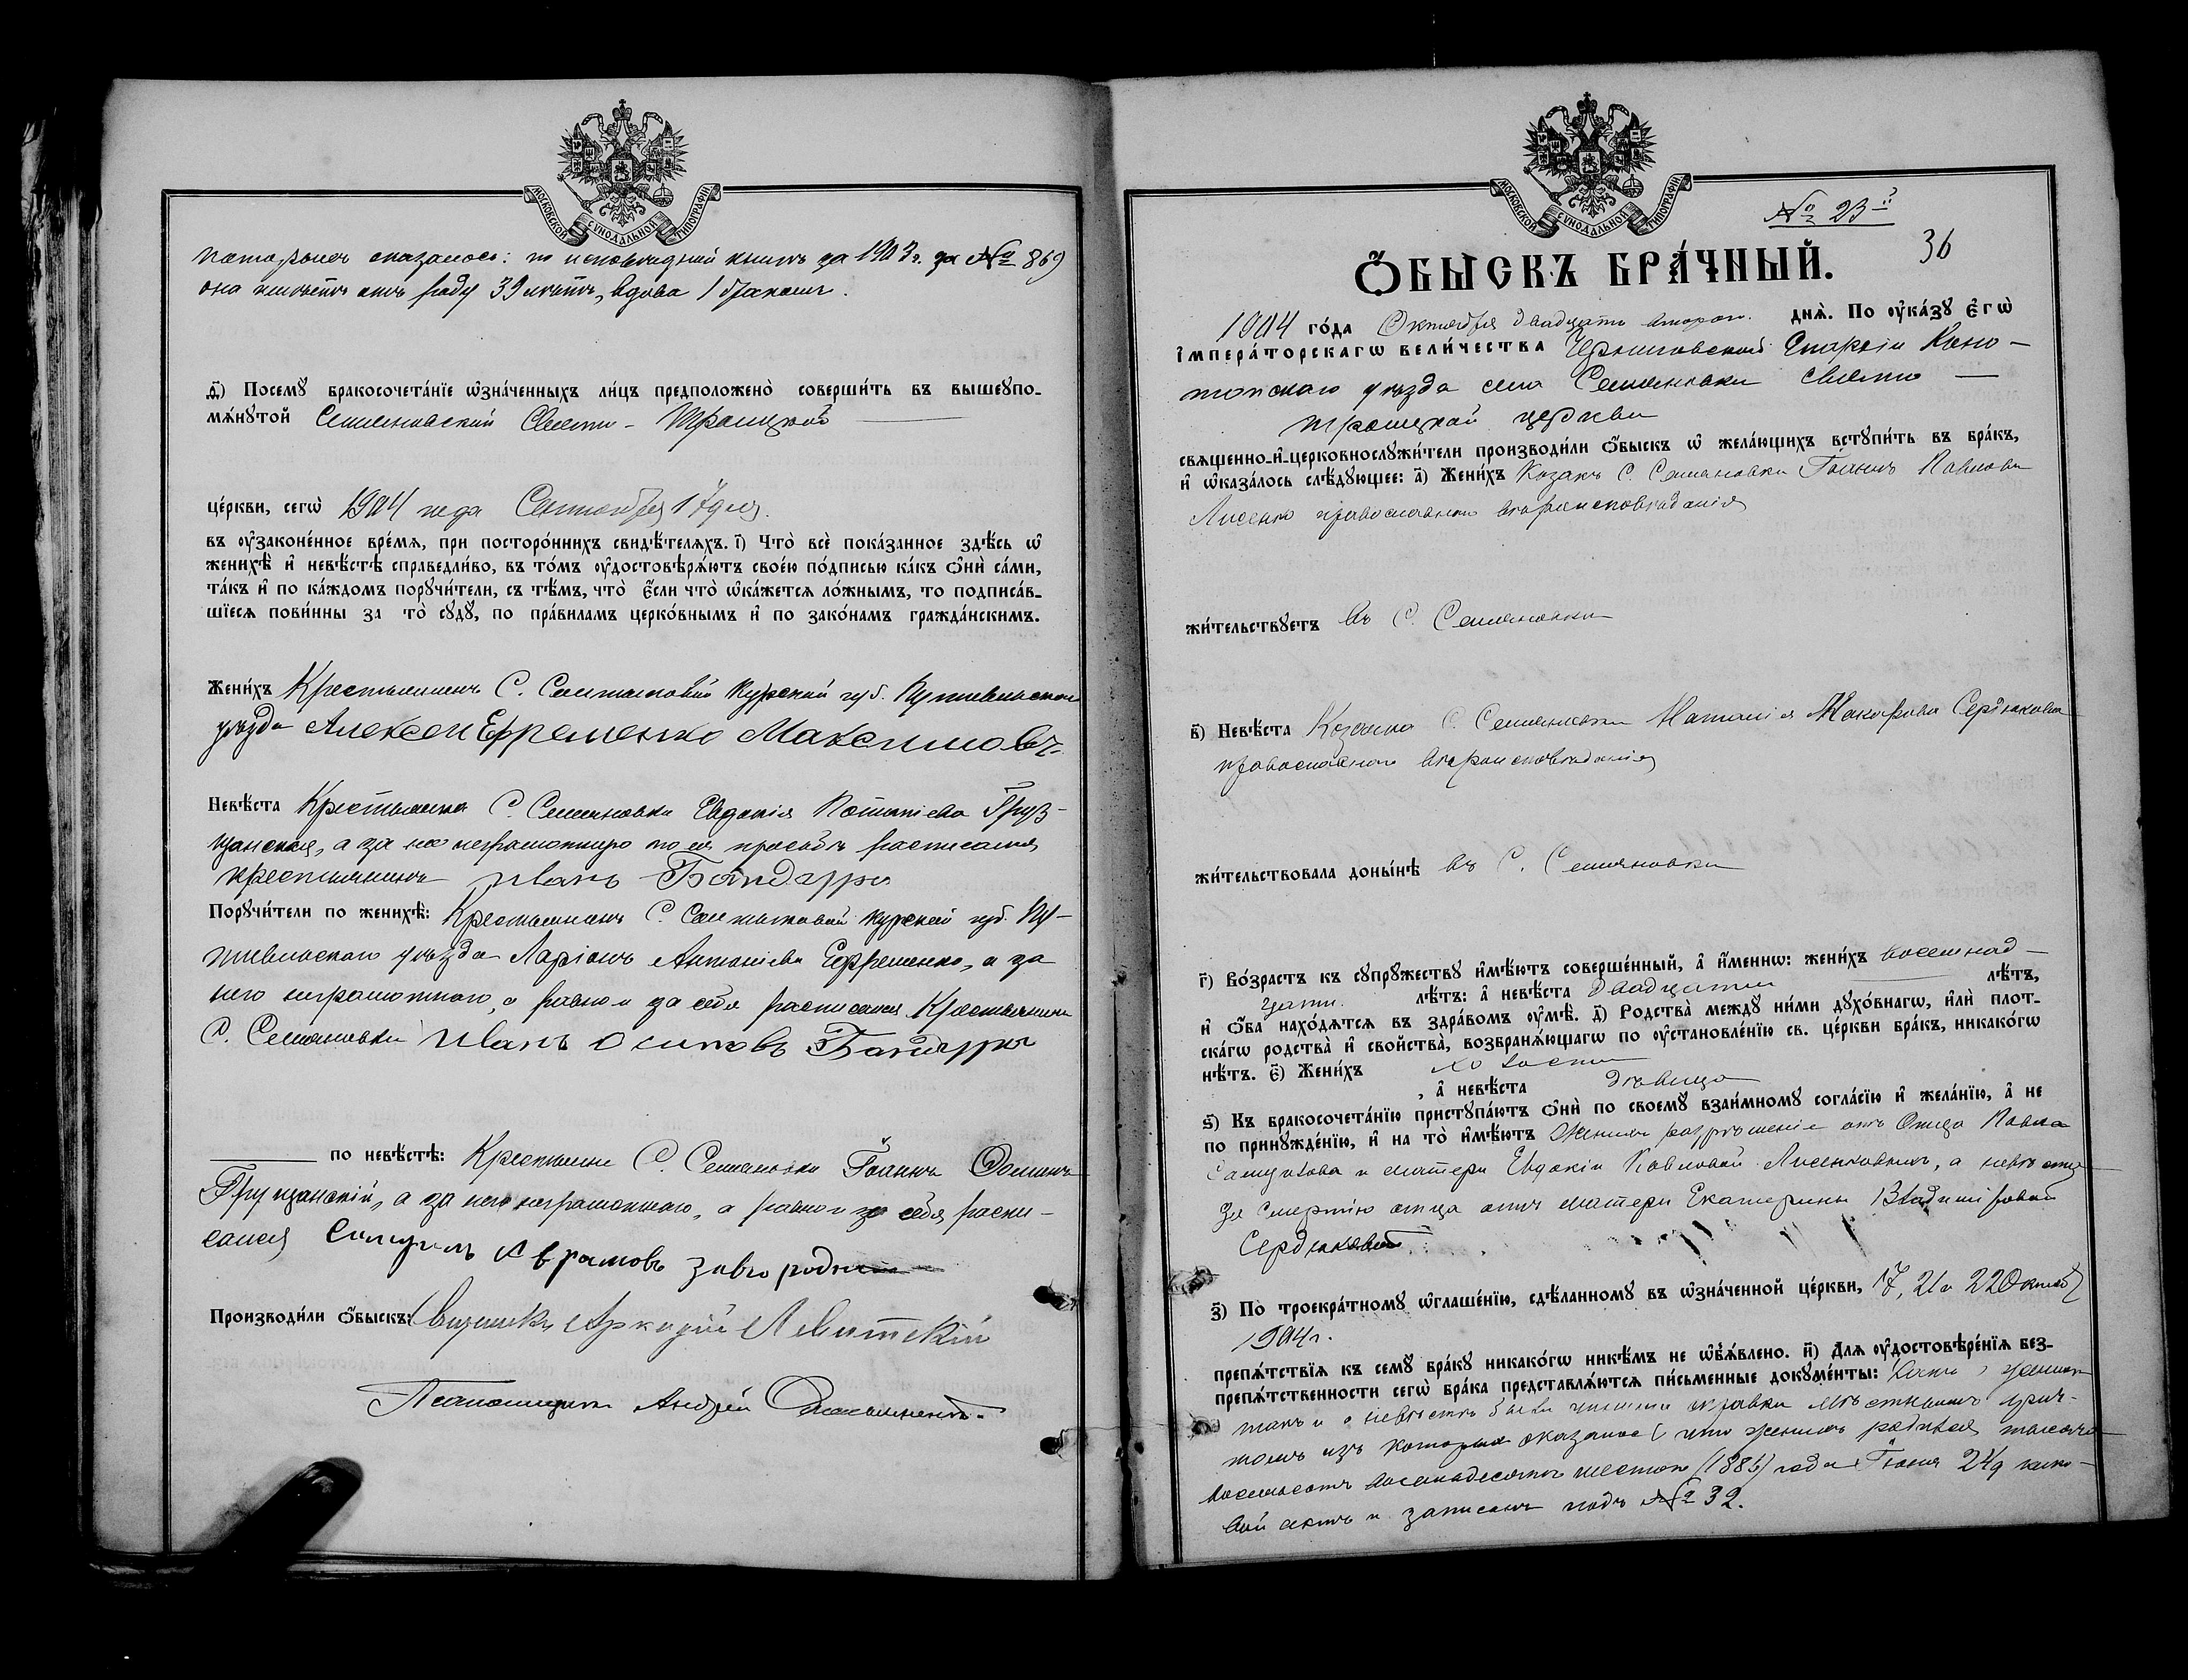 МОСКОВСКОЙ СѴНОДАЛЬНОЙ ТИПОГРАФІИ
оказалось: по исповѣдной книгѣ за 1903 г. за № 869
она имѣетъ отъ роду 39 лѣтъ, вдова 1 бракомъ.
д҃і) Посемꙋ̀ бракосочета́нїе ѡ҆зна́ченныхъ ли́цъ предположено̀ соверши́ть въ вышеꙋпо-
мѧ́нꙋтой Семяновской Свято-Троицкой
це́ркви, сегѡ̀ 1904 года Сентября 17 дня.
въ ᲂу҆зако́не́нное вре́мѧ, при посторо́ннихъ свидѣ́телѧхъ. і҃) Что̀ всѐ пока́занное здѣ́сь ѡ҆
женихѣ̀ и҆ невѣ́стѣ справедли́во, въ то́мъ ᲂу҆достовѣрѧ́ютъ свое́ю по́дписью ка́къ ѻ҆нѝ са́ми,
та́къ и҆ по ка́ждомъ порꙋчи́тели, съ тѣ́мъ, что̀ є҆́сли что̀ ѡ҆ка́жетсѧ ло́жнымъ, то подписа́в-
шїесѧ пови́нны за то̀ сꙋдꙋ̀, по пра́виламъ церко́внымъ и҆ по зако́намъ гражда́нскимъ.
Жени́хъ Крестьянинъ С. Курской губ. Путивльскаго
уѣзда Алексей Ефременко Максимовъ
Невѣ́ста Крестьянка С. Семяновки Евдокія Потапіева Груз-
цанская, а за нее неграмотную по ея просьбѣ росписался
крестьянинъ Иванъ Бандура
Порꙋчи́тели по женихѣ̀: Крестьянинъ С. Курской губ. Пу-
тивльскаго уѣзда Ларіонъ Антоніевъ Ефременко, а за
него неграмотнаго, а равно и за себя росписался Крестьянинъ
С. Семяновки Иванъ Осиповъ Бандура
по невѣ́стѣ: Крестьянинъ С. Семяновки Іоаннъ
а за него неграмотнаго, а равно и за себя роспи-
сался Самуилъ Аврамовъ
Производи́ли ѻ҆́быскъ: Священникъ Аркадій Левитскій
Псаломщикъ Андрей
МОСКОВСКОЙ СѴНОДАЛЬНОЙ ТИПОГРАФІИ
№ 23-й
36
Ѻ҆́БЫСКЪ БРА́ЧНЫЙ.
1904 го́да Октября двадцать втораго днѧ̀. По ᲂу҆ка́зꙋ є҆гѡ̀
і҆мпера́торскагѡ вели́чества Черниговской Епархіи Коно-
топскаго уѣзда села Семяновки Свято-
Троицкой церкви
свѧщенно-и҆-церковнослꙋжи́тели производи́ли ѻ҆́быскъ ѡ҆ жела́ющихъ встꙋпи́ть въ бра́къ,
и҆ ѡ҆каза́лось слѣ́дꙋющее: а҃) Жени́хъ Козакъ С. Семяновки Іоаннъ Павловъ
Лисенко православнаго вѣроисповѣданія
жи́тельствꙋетъ въ С. Семяновки
в҃) Невѣ́ста Козачка С. Семяновки Наталія Макарова Сердюкова
православнаго вѣроисповѣданія
жи́тельствовала доны́нѣ въ С. Семяновки
г҃) Во́зрастъ къ сꙋпрꙋ́жествꙋ и҆мѣ́ютъ соверше́нный, а҆ и҆́меннѡ: жени́хъ восемнад-
цати лѣ́тъ: а҆ невѣ́ста двадцати лѣ́тъ,
и҆ ѻ҆́ба нахо́дѧтсѧ въ здра́вомъ ᲂу҆мѣ̀. д҃) Родства̀ междꙋ ни́ми дꙋхо́внагѡ, и҆лѝ плот-
ска́гѡ родства̀ и҆ сво́йства̀, возбранѧ́ющагѡ по ᲂу҆становле́нїю св. це́ркви бра́къ, никако́гѡ
нѣ́тъ. є҃) Жени́хъ холостъ
, а҆ невѣ́ста дѣвица
ѕ҃) Къ бракосочета́нїю пристꙋпа́ютъ ѻ҆нѝ по своемꙋ̀ взаи́мномꙋ согла́сїю и҆ жела́нїю, а҆ не
по принꙋжде́нїю, и҆ на то̀ и҆мѣ́ютъ Женихъ разрѣшеніе отъ Отца Павла
и матери Евдокіи Павловой Лисенковыхъ, а невѣста
за смертію отца отъ матери Екатерины Владиміровой
Сердюковой
з҃) По троекра́тномꙋ ѡ҆глаше́нїю, сдѣ́ланномꙋ въ ѡ҆зна́ченной це́ркви, 17, 21 и 22 Октяб.
1904 г.
препѧ́тствїѧ къ семꙋ̀ бра́кꙋ никако́гѡ никѣ́мъ не ѡ҆б̾ѧ́влено. и҃) Длѧ ᲂу҆достовѣре́нїѧ без-
препѧ́тственности сегѡ̀ бра́ка представлѧ́ютсѧ пи́сьменные докꙋме́нты: Какъ о женихѣ
такъ и о невѣстѣ были справки мѣстнымъ прич-
томъ изъ которыхъ оказалось что женихъ родился тысяча
восемьсотъ восемьдесятъ шестого (1886) года Іюня 24 д
актъ и записанъ подъ № 32.